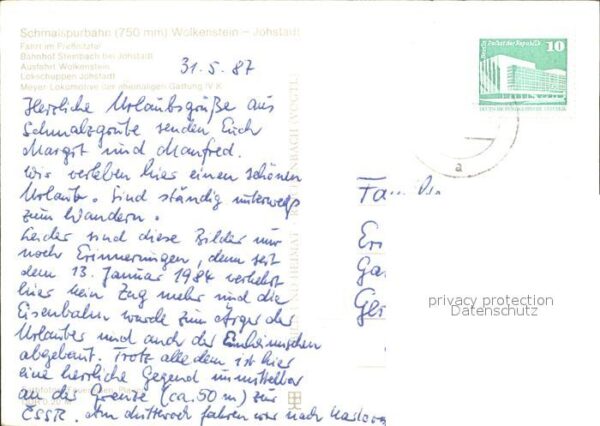 Schmalspurbahn (750 mm) Wolkenstein – Jöhstadt
Fahrt im Preßnitztal
Bahnhof Steinbach bei Jöhstadt
Ausfahrt Wolkenstein
Lokschuppen Jöhstadt
Meyer-Lokomotive der ehemaligen Gattung IV K
31.5.87
Herzliche Urlaubsgrüße aus
Schmalzgrube senden Euch
Margit und Manfred.
Wir verleben hier einen schönen
Urlaub. Sind ständig unterwegs
zum Wandern.
Leider sind diese Bilder nur
noch Erinnerungen, denn seit
dem 13. Januar 1984 verkehrt
hier kein Zug mehr und die
Eisenbahn wurde zum Ärger der
Urlauber und auch der Einheimischen
abgebaut. Trotz alledem ist hier
eine herrliche Gegend unmittelbar
an der Grenze (ca. 50 m) zur
ČSSR. Am Mittwoch fahren wir nach
Berlin Palast der Republik
10
a
Familie
privacy protection
Datenschutz